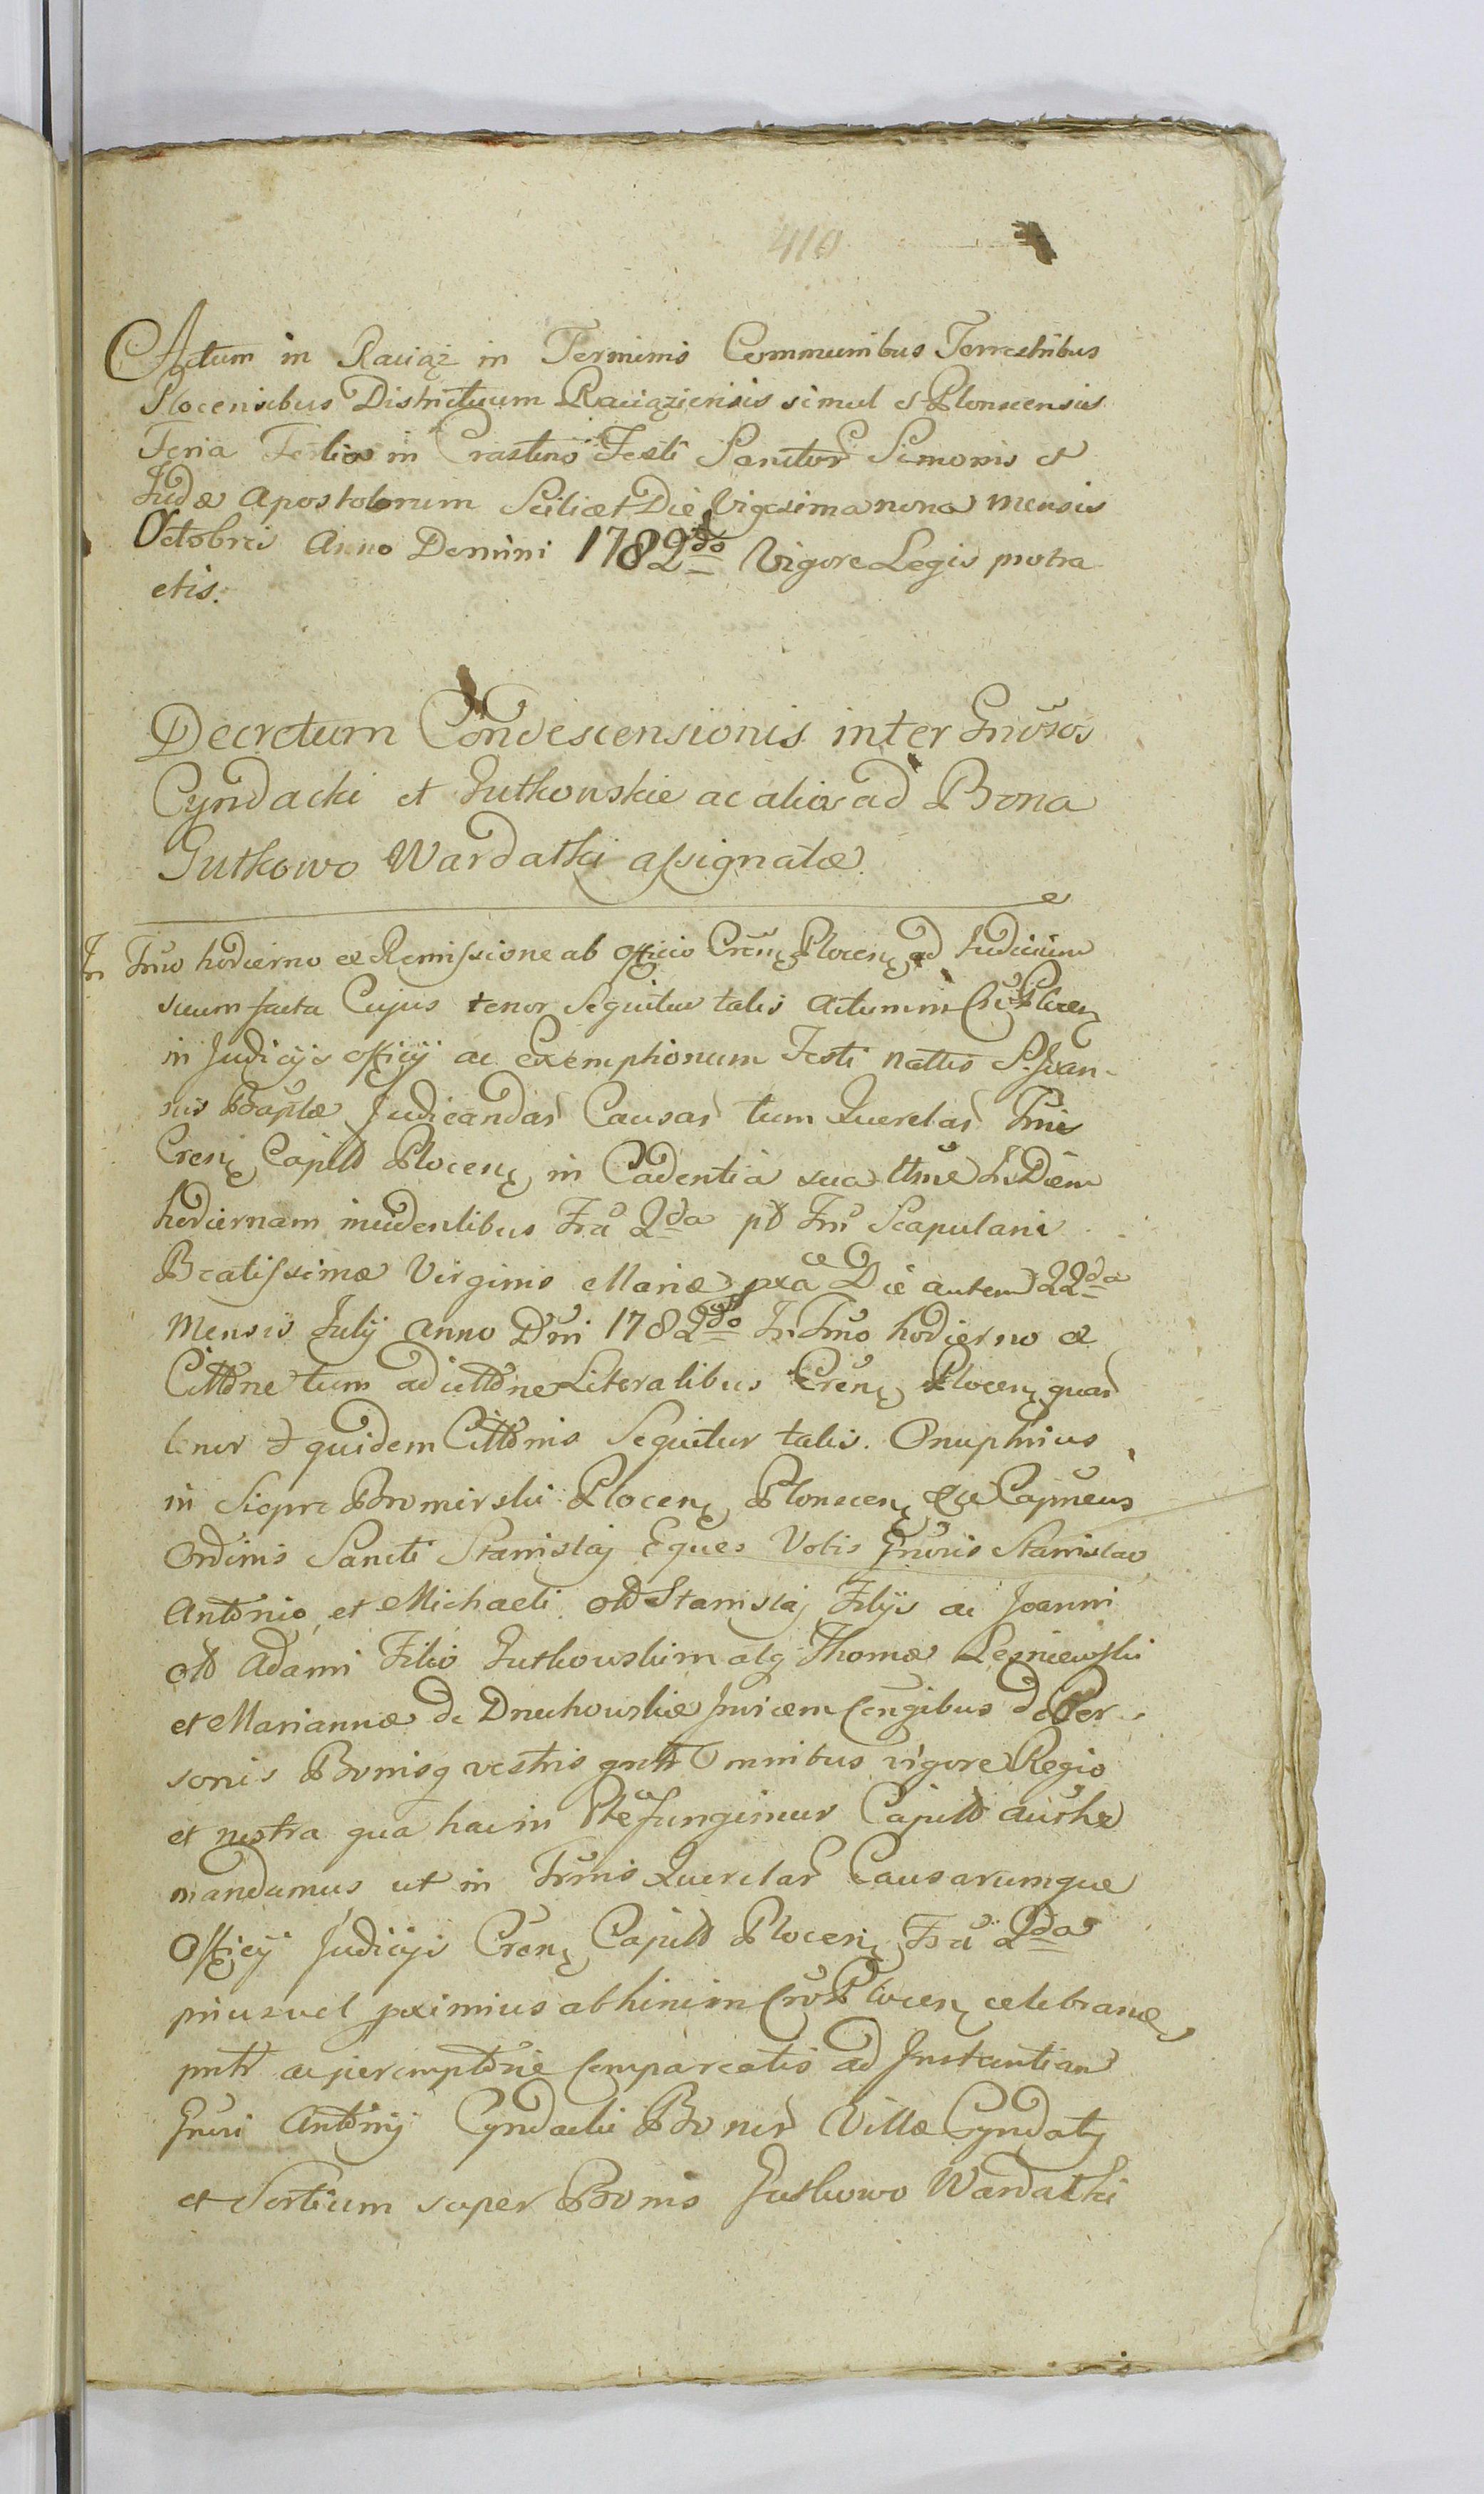 410
Actum in Raciąż in Terminis Communibus Terrestribus
Plocensibus Districtuum Raciąziensis simul et Plonscensis
Feria Tertia in Crastino Festi Sanctor Simonis et
Judæ Apostolorum Scilicet Die Vigesima nona Mensis
Octobris Anno Domini 1782do Vigore Legis protra
ctis.
Decretum Condescensionis inter Gnõsos
Cyndacki et Gutkowskie ac alios ad Bona
Gutkowo Wardatki assignatæ
In Tmõ hodierno ex Remissione ab Officio Crẽn Plocen ad Judicium
suum facta Cujus tenor Sequitur talis Actum in Crõ Plocen
in Judicijs officij ac Exemptionum Festi Nattis S. Joan-
nis Baptæ Judicandar Causar tum Querelar Tmis
Cren Capitt Plocen in Cadentia sua Ultme In Diem
hodiernam incidentibus Fra 2da pt Fm Scapularis
Beatissimæ Virginis Mariæ pxa Die autem 22da
Mensis Julij Anno Dni 1782do In Tmo hodierno ex
Cittõne tum adcittõne Literalibus Cren Plocen quar
tenor et quidem Cittõnis Sequitur talis. Onuphrius
in Siepre Bromirski Plocen Plonscen Capneus
Ordinis Sancti Stanislaj Eques Vobis Gnõsis Stanislao
Antonio, et Michaeli olt Stanislaj Filijs ac Joanni
olt Adami Filio Gutkowskim atq Thomæ Lesniewski
et Mariannæ de Druchowskie Invicem Conjgibus de Per-
sonis Bonisq vestris gnltr Omnibus vigore Regia
et nostra qua hac in Pte fungimur Capitt aucthe
mandamus ut in Trmis Querelar Causarumque
Officij Judicijs Cren Capitt Plocen Fra 2da
prius vel pximius abhinc in Cro Plocen celebran
pntr ac peremptorie Compareatis ad Instantiam
Gnõsi Antonij Cyndacki Bonor Villæ Cyndaty
et Sortium super Bonis Gutkowo Wardatki